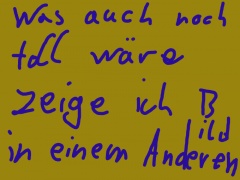 Was auch noch
toll wäre
zeige ich B
ild
in einem Anderen